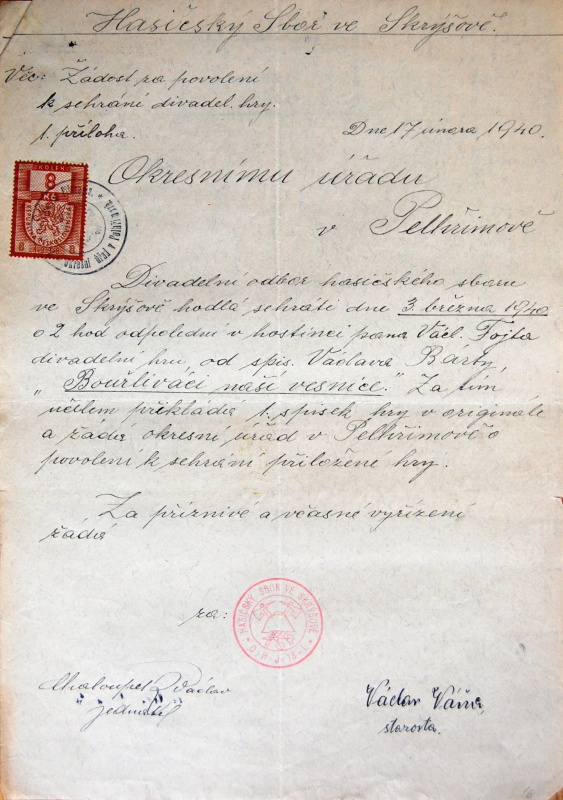 Hasičský Sbor ve Skrýšově.
Věc: Žádost za povolení
k sehrání divadel. hry.
1. příloha.
Dne 17 února 1940.
KOLEK
8
8 8
Okresnímu úřadu
v Pelhřimově
Divadelní odbor hasičského sboru
ve Skrýšově hodlá sehráti dne 3. března 1940
o 2 hod odpolední v hostinci pana Václ. Fojta
divadelní hru, od spis. Václava Bárty
"Bouřliváci naší vesnice." Za tím
účelem přikládá 1. spisek hry v originále
a žádá okresní úřad v Pelhřimově o
povolení k sehrání přiložené hry.
Za příznivé a včasné vyřízení
žádá
za:
HASIČSKÝ SBOR VE SKRÝŠOVĚ
Chaloupek Václav
jednatel
Václav Váňa,
starosta.